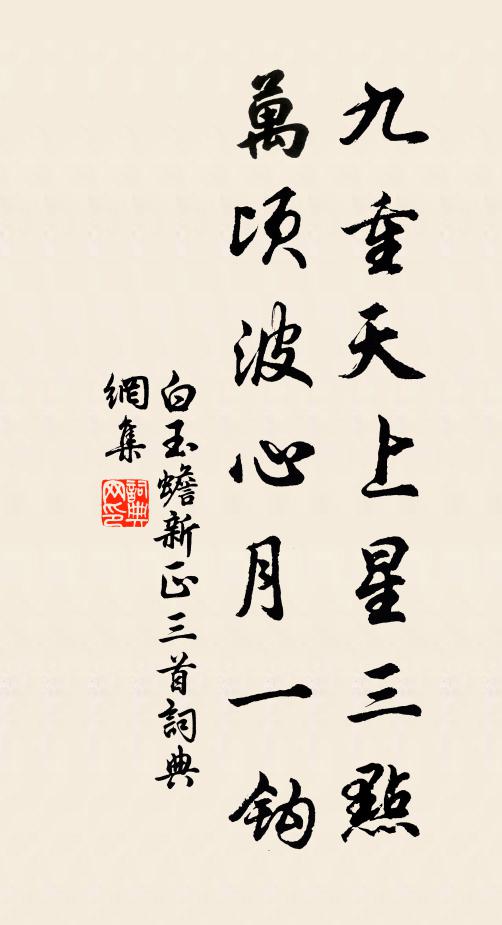 九重天上星三點
萬頃波心月一鈎
白玉蟾新正三首詞典
網集
詞典網印